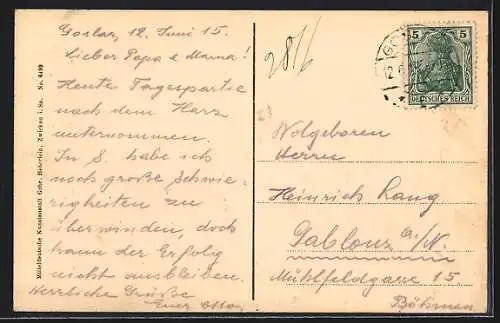 Goslar, 12. Juni 15.
Lieber Papa & Mama!
Heute Tagespartie
nach dem Harz
unternommen.
In S. habe ich
noch große Schwie-
rigkeiten zu
überwinden, doch
kann der Erfolg
nicht ausbleiben.
Herrliche Grüße
Euer Otto
Mitteldeutsche Kunstanstalt Gebr. Heierlein, Zwickau i. Sa. No. 6499
28/6
5 5
DEUTSCHES REICH
Wolgeboren
Herrn
Heinrich Lang
Gablonz a/N.
Mühlfeldgasse 15.
Böhmen